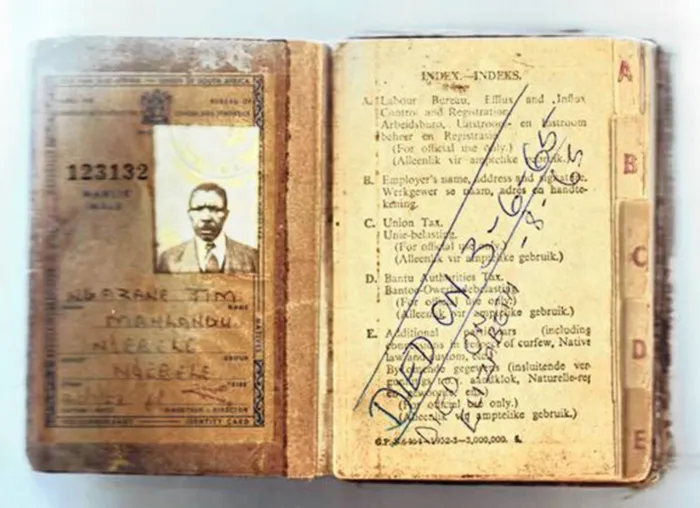 UNION OF SOUTH AFRICA
BUREAU OF
123132
MANLIK
MALE
NGAZANE JIM
NAME
MAHLANGU
NDEBELE
GROUP
NDEBELE
TRIBE
DIRECTOR
IDENTITY CARD
INDEX.—INDEKS.
A. Labour Bureau, Efflux and Influx
Control and Registration.
Arbeidsburo, Uitstroom- en Instroom
beheer en Registrasie
(For official use only.)
(Alleenlik vir amptelike gebruik.)
B. Employer's name, address and signature.
Werkgewer se naam, adres en handte-
kening.
C. Union Tax.
Unie-belasting.
(For official use only.)
(Alleenlik vir amptelike gebruik.)
D. Bantu Authorities Tax.
(For official use only.)
(Alleenlik vir amptelike gebruik.)
E. Additional particulars (including
concessions in respect of curfew, Native
law and custom, etc.)
Byvoegende gegewens (insluitende ver-
aandklok, Naturelle-reg
(For official use only.)
(Alleenlik vir amptelike gebruik.)
DIED ON 3-6-65
-8-65
A
B
C
D
E